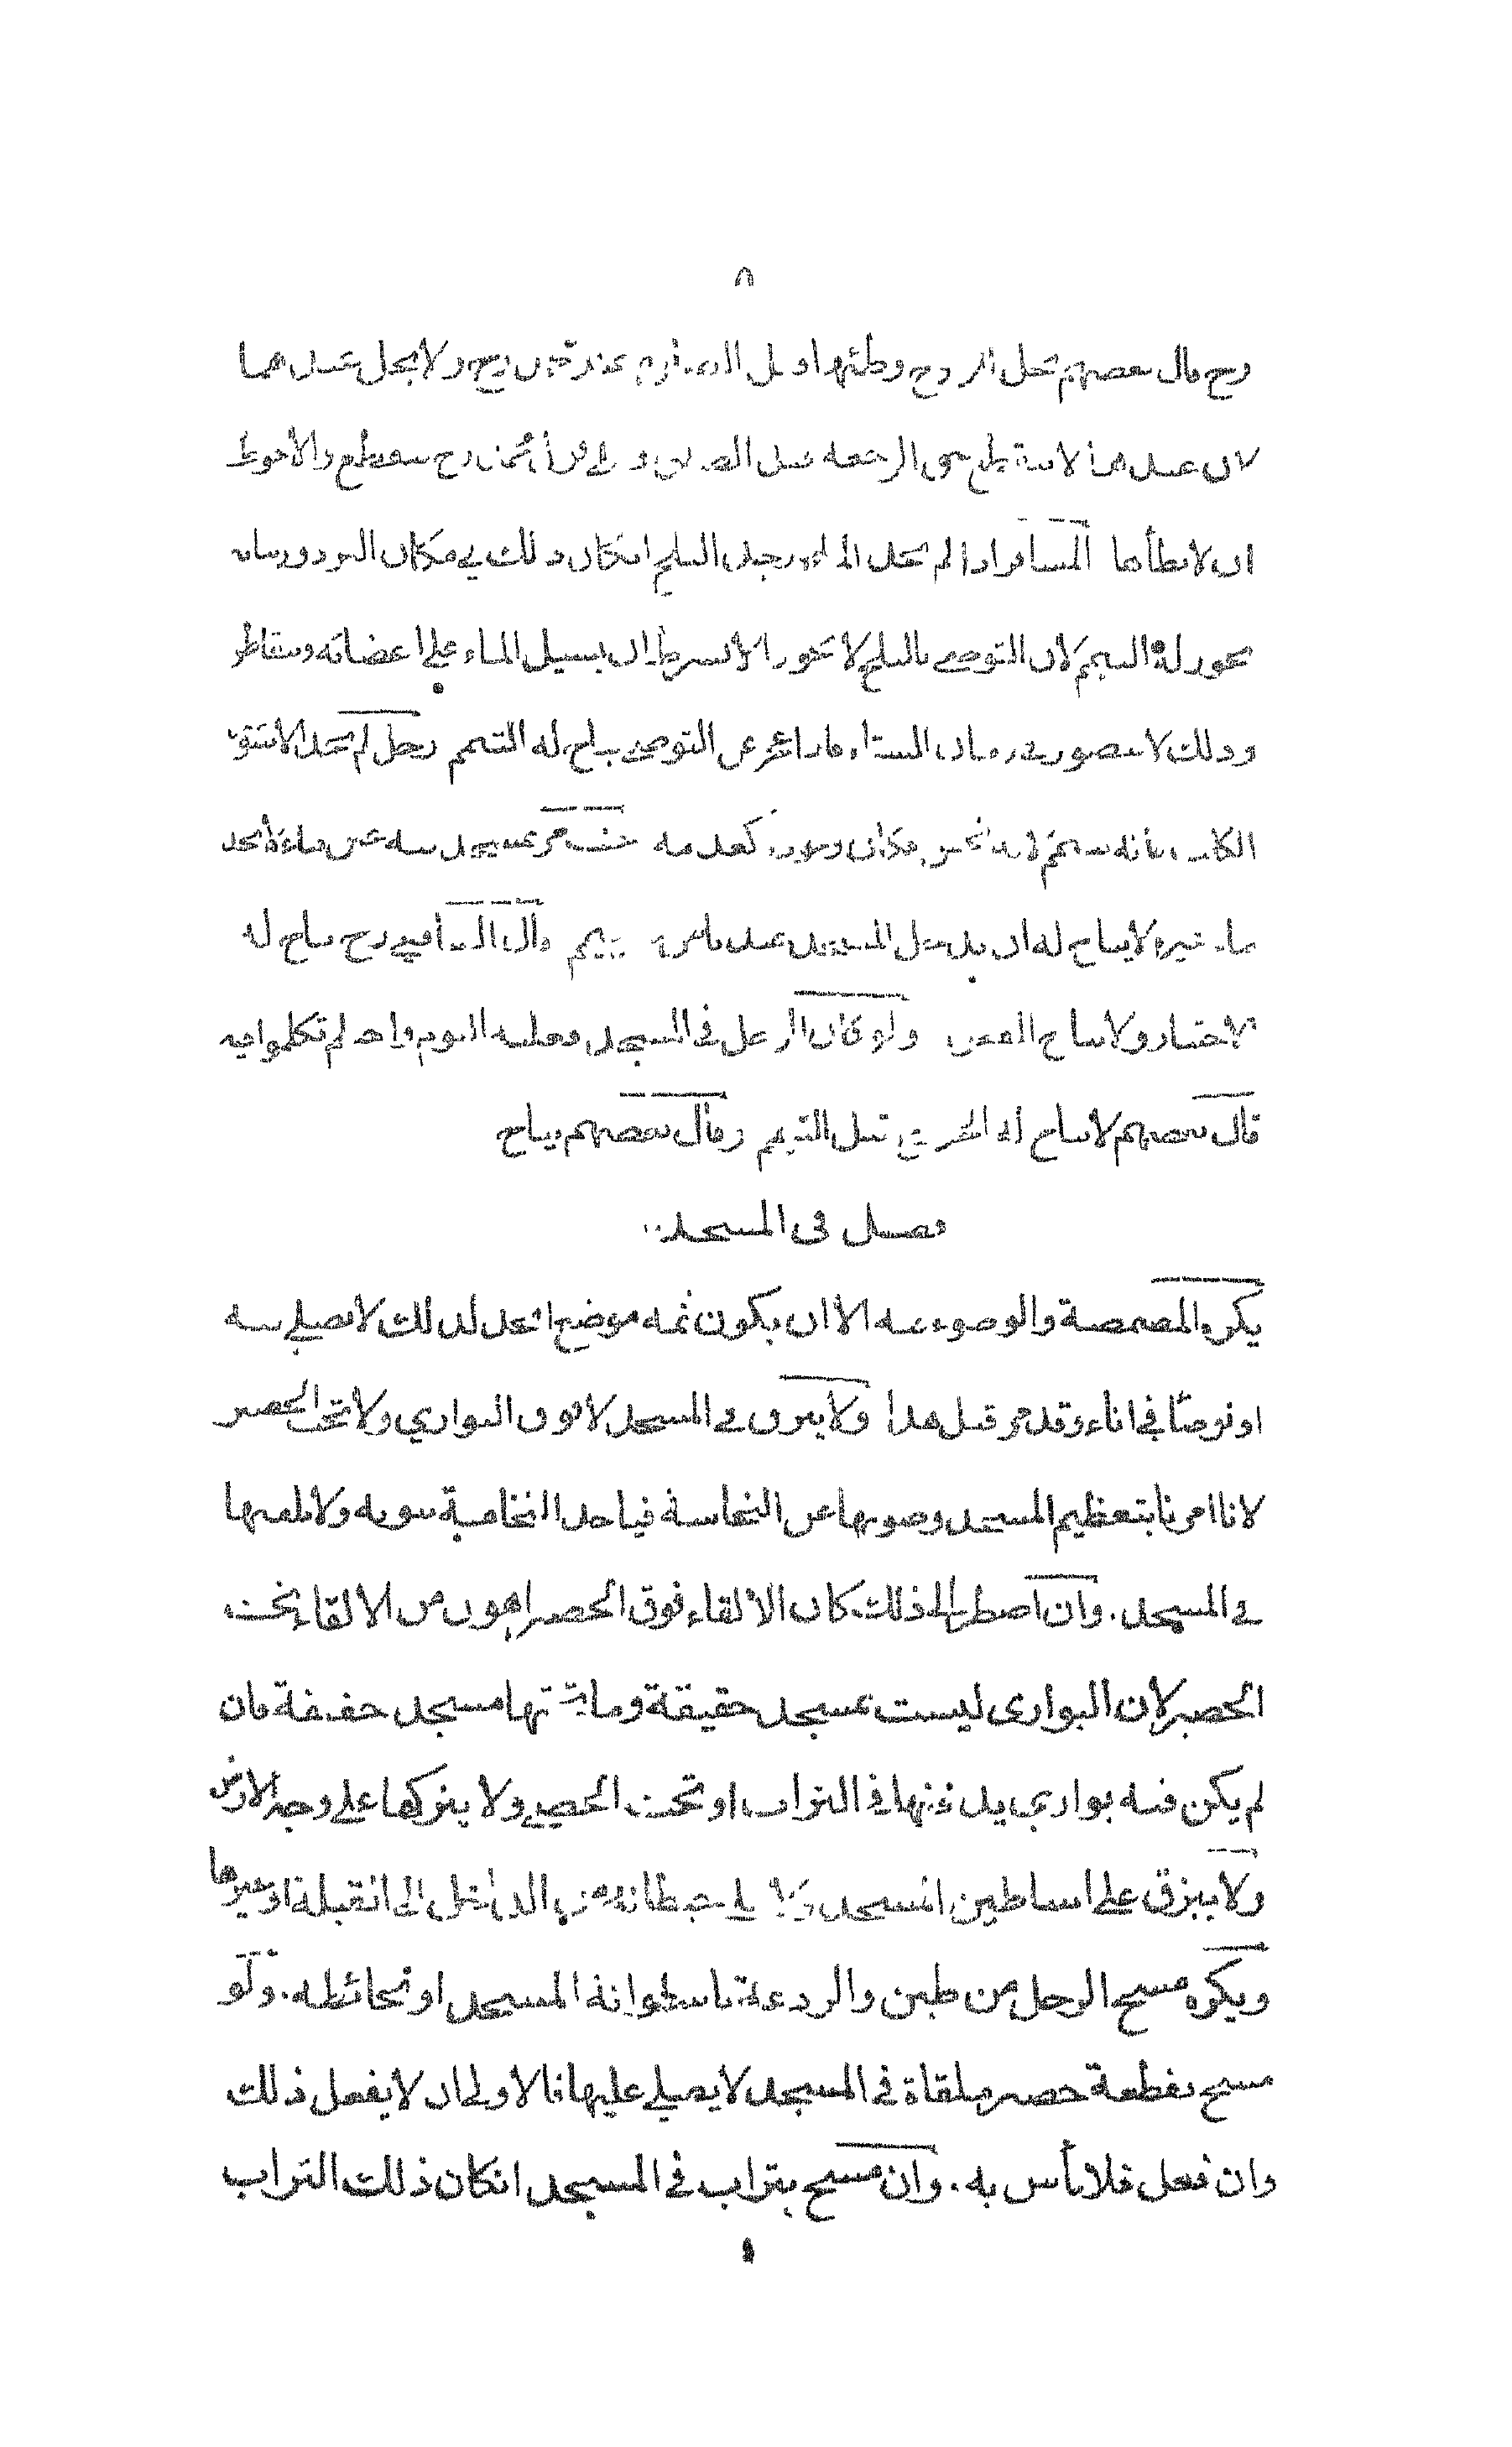 ٨
رح قال بعضهم تحل للزوج وطئها وقيل الصلاة عند محمد رح ولا يحل عندهما
لان عندهما لا تنقطع حق الرجعة قبل الصلاة وعلى قول محمد رح ينقطع والأحوط
ان لا يطأها المسافر اذا لم يجد الماء ووجد الثلج ان كان ذلك في مكان البرد وزمانه
يجوز له التيمم لان التوضي بالثلج لا يجوز الا بشرط ان يسيل الماء على أعضائه ويتقاطر
وذلك لا يتصور في زمان الشتاء فاذا عجز عن التوضي يباح له التيمم رجل لم يجد الا سؤر
الكلب فانه يتيمم لانه نجس فكان وجوده كعدمه جنب مر بمسجد فيه عين ماء ولا يجد
ماء غيره لا يباح له ان يدخل المسجد عندنا من تيمم وقال الشافعي رح يباح له
الاختيار ولا يباح المكث ولو كان الرجل في المسجد فغلبه النوم واحتلم تكلموا فيه
قال بعضهم لا يباح له الخروج قبل التيمم وقال بعضهم يباح
فصل في المسجد
يكره المضمضة والوضوء فيه الا ان يكون ثمه موضع اتخذ لذلك لا يصلي فيه
او توضأ في اناء وقد مر قبل هذا ولا يبزق في المسجد لا فوق البواري ولا تحت الحصير
لانا امرنا بتعظيم المسجد وصونها عن النجاسة فياخذ النخامة بثوبه ولا يلقيها
في المسجد. وان اضطر الى ذلك كان الالقاء فوق الحصير اهون من الالقاء تحت
الحصير لان البواري ليست بمسجد حقيقة وما تحتها مسجد حقيقة فان
لم يكن فيه بواري يدفنها في التراب او تحت الحصى ولا يتركها على وجه الارض
ولا يبزق على اساطين المسجد ولا على حيطانه من الداخل الى القبلة او غيرها
ويكره مسح الرجل من طين والردعة باسطوانة المسجد او بحائطه. ولو
مسح بقطعة حصير ملقاة في المسجد لا يصلي عليها فالاولى ان لا يفعل ذلك
وان فعل فلا بأس به. وان مسح بتراب في المسجد ان كان ذلك التراب